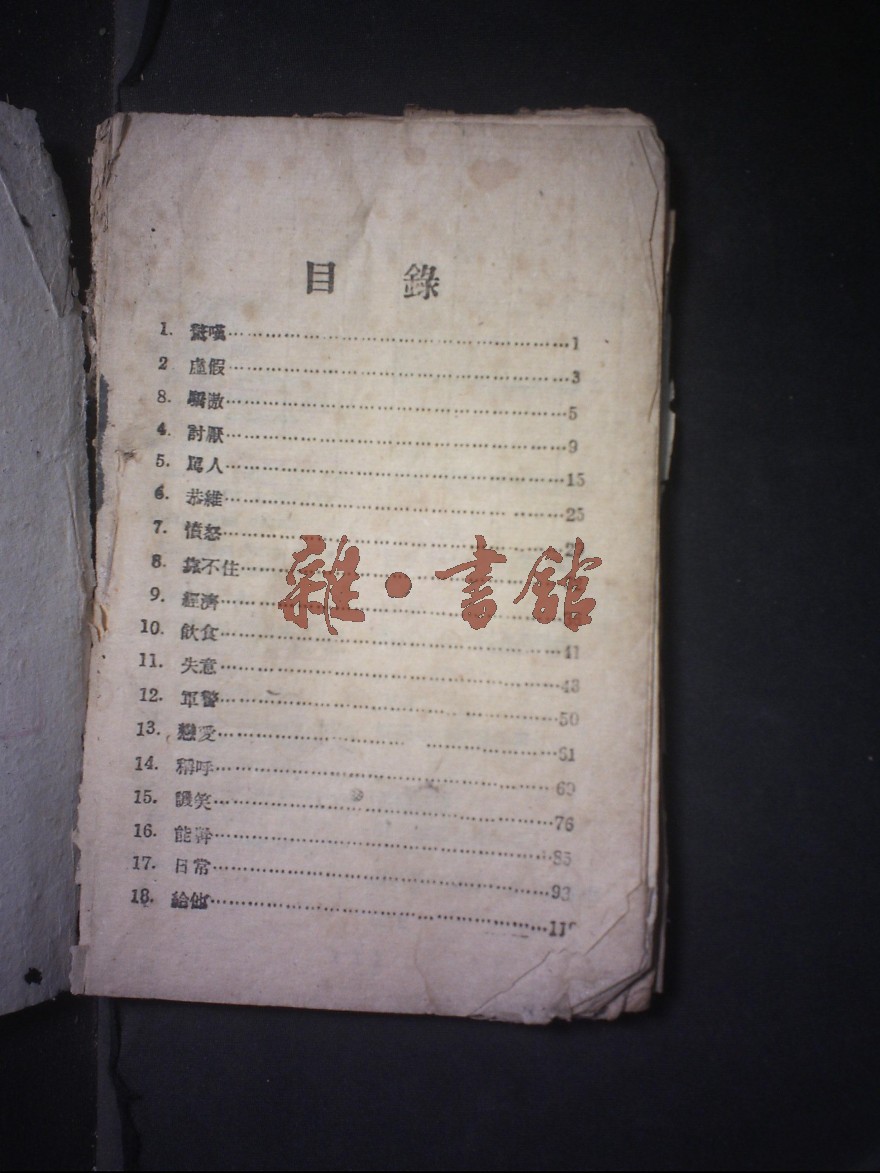 目 錄
1. 驚嘆………………………………1
2 虛假………………………………3
3. 驕傲………………………………5
4. 討厭………………………………9
5. 罵人………………………………15
6. 恭維………………………………25
7. 憤怒………………………………2
8. 靠不住………………………………
雜·書館
9. 經濟………………………………
10. 飲食………………………………41
11. 失意………………………………43
12. 軍警………………………………50
13. 戀愛………………………………61
14. 稱呼………………………………69
15. 譏笑………………………………76
16. 能幹………………………………85
17. 日常………………………………93
18. ………………………………11